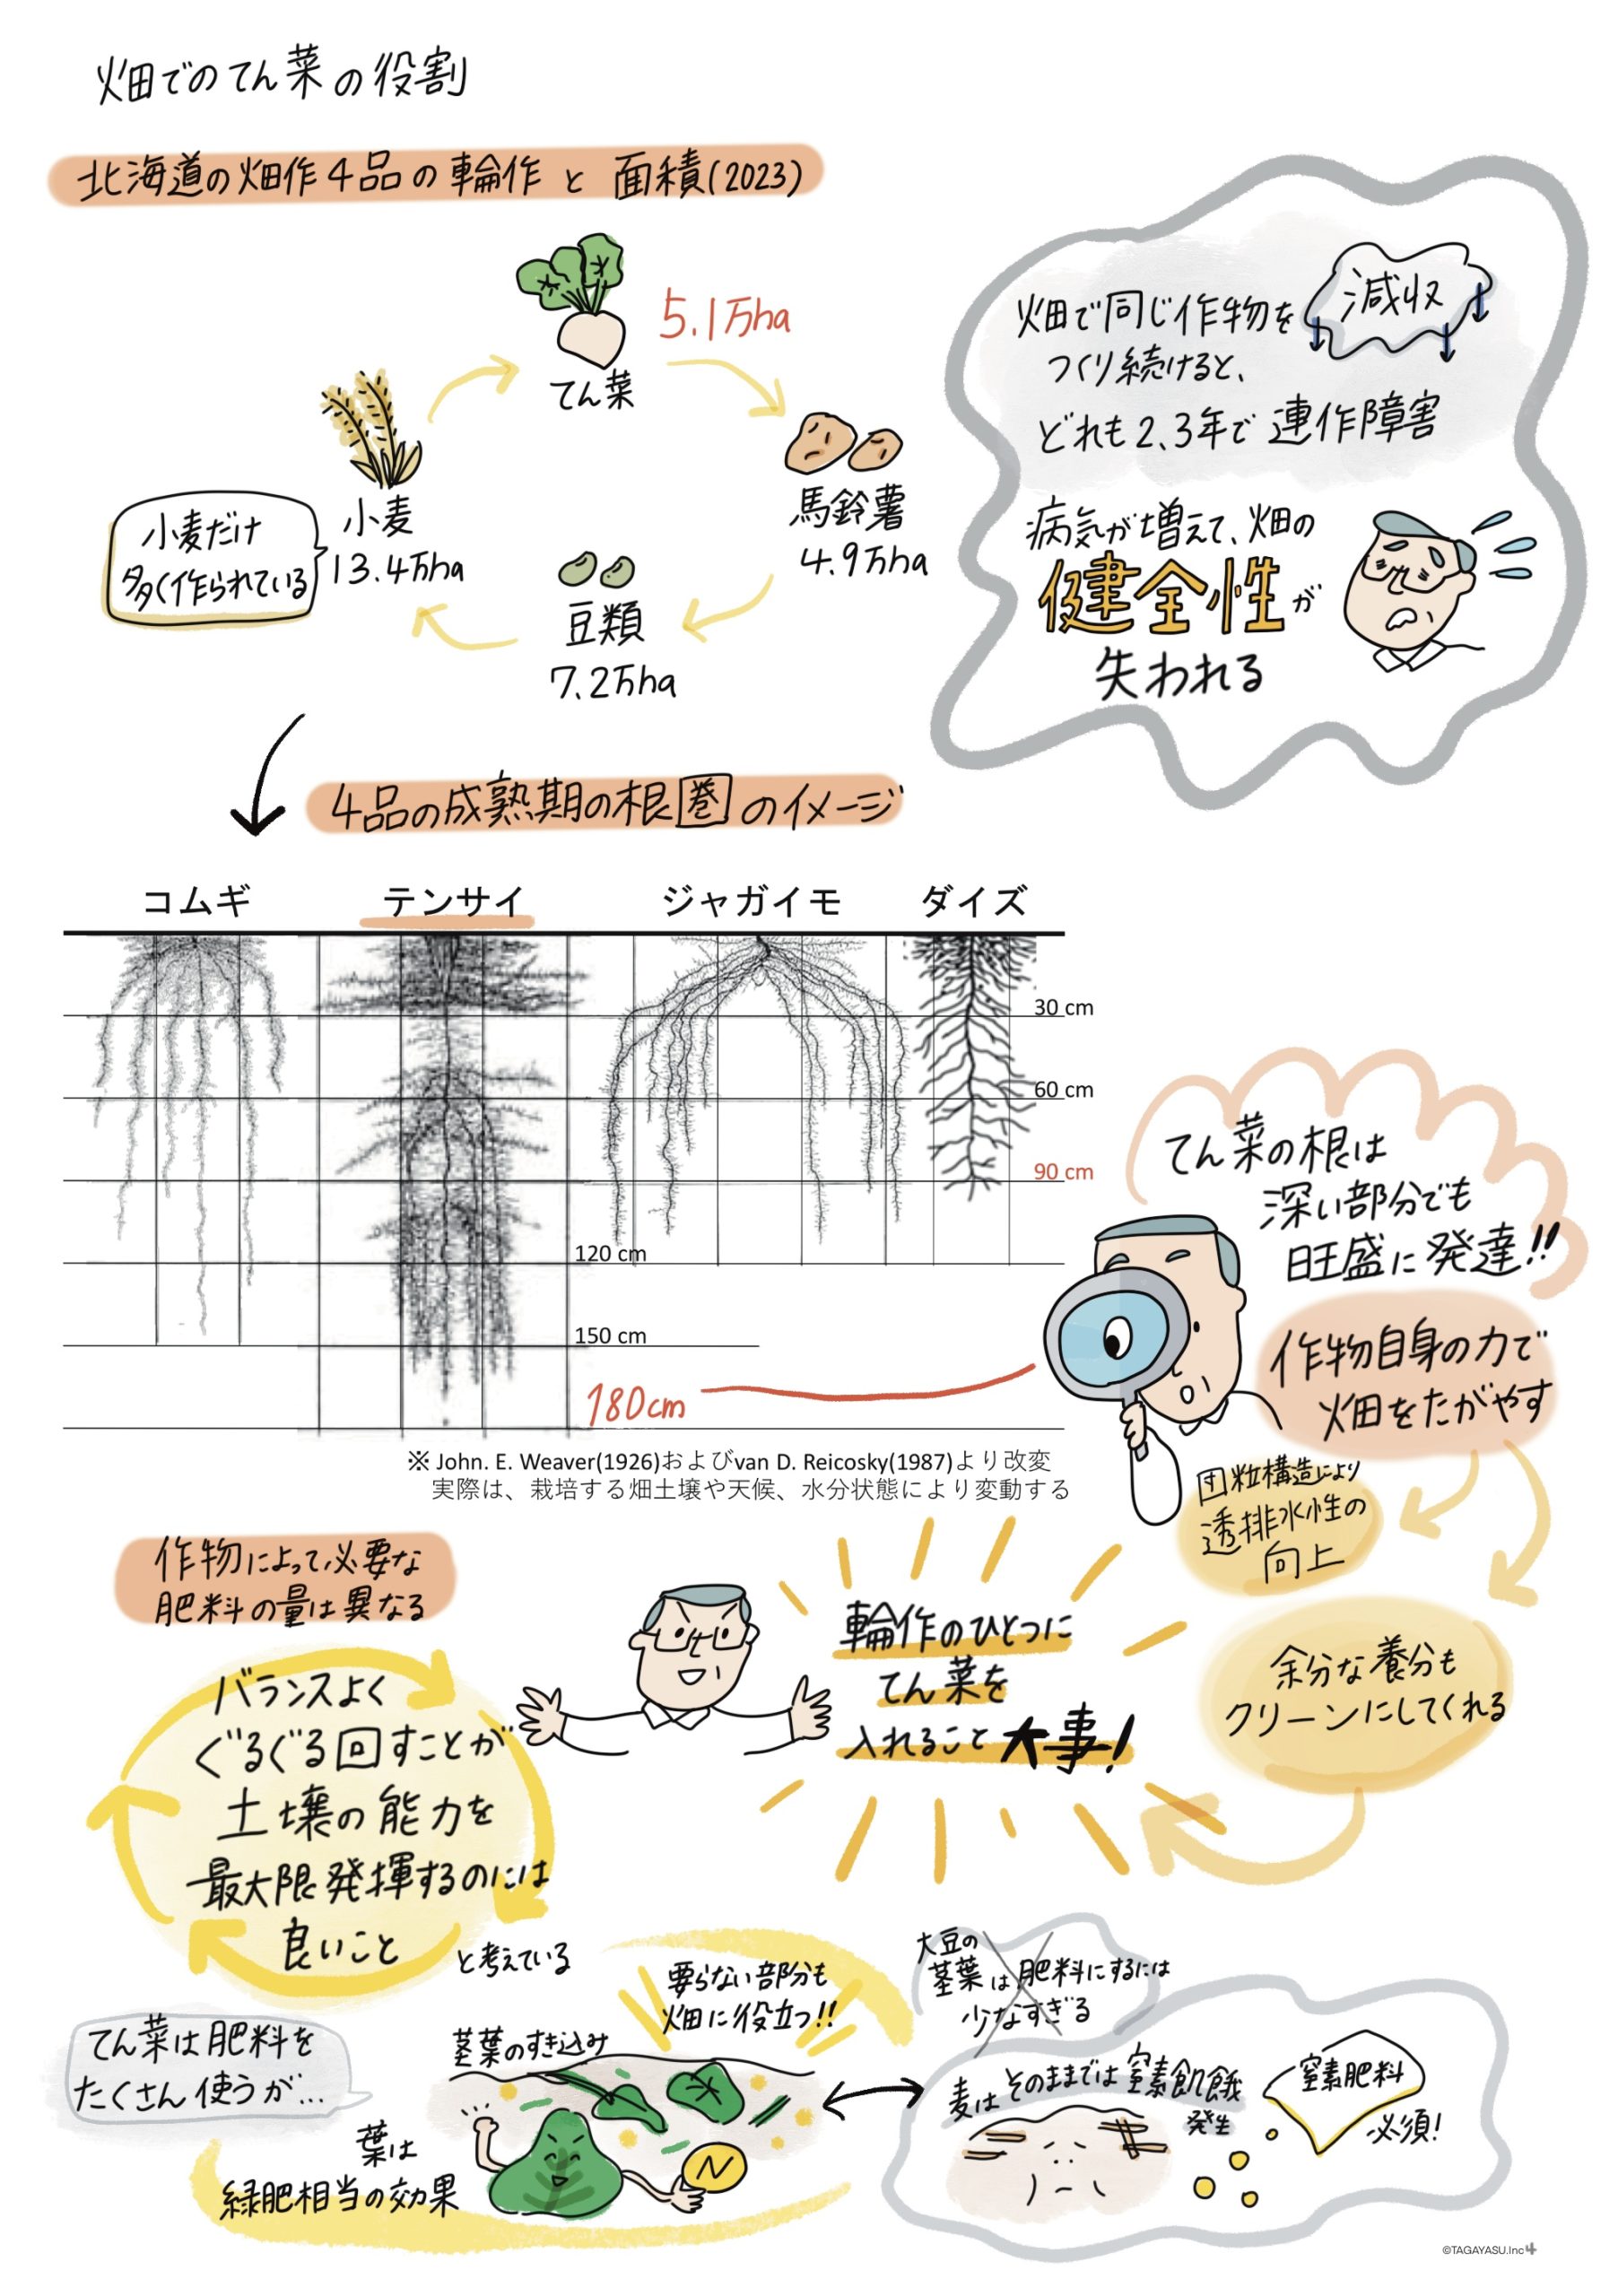 畑でのてん菜の役割
北海道の畑作4品の輪作と面積(2023)
5.1万ha
てん菜
馬鈴薯
4.9万ha
豆類
7.2万ha
小麦
13.4万ha
小麦だけ
多く作られている
畑で同じ作物を
つくり続けると、
減収
どれも2、3年で連作障害
病気が増えて、畑の
健全性が
失われる
4品の成熟期の根圏のイメージ
コムギ
テンサイ
ジャガイモ
ダイズ
30 cm
60 cm
90 cm
120 cm
150 cm
180cm
※ John. E. Weaver(1926)およびvan D. Reicosky(1987)より改変
実際は、栽培する畑土壌や天候、水分状態により変動する
てん菜の根は
深い部分でも
旺盛に発達!!
作物自身の力で
畑をたがやす
団粒構造により
透排水性の
向上
余分な養分も
クリーンにしてくれる
輪作のひとつに
てん菜を
入れること大事!
作物によって必要な
肥料の量は異なる
バランスよく
ぐるぐる回すことが
土壌の能力を
最大限発揮するのには
良いこと
と考えている
てん菜は肥料を
たくさん使うが…
茎葉のすき込み
要らない部分も
畑に役立つ!!
葉は
緑肥相当の効果
N
大豆の
茎葉は肥料にするには
少なすぎる
麦はそのままでは窒素飢餓
発生
窒素肥料
必須!
©TAGAYASU.Inc